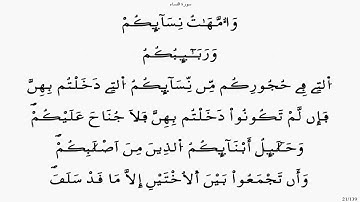 سورة النساء
وَأُمَّهَٰتُ نِسَآئِكُمْ
وَرَبَٰٓئِبُكُمُ
اُلتِے فِے حُجُورِكُم مِّن نِّسَآئِكُمُ اُلتِے دَخَلْتُم بِهِنَّ
فَإِن لَّمْ تَكُونُواْ دَخَلْتُم بِهِنَّ فَلَا جُنَاحَ عَلَيْكُمْۖ
وَحَلَٰٓئِلُ أَبْنَآئِكُمُ اُلذِينَ مِنَ اَصْلَٰبِكُمْۖ
وَأَن تَجْمَعُواْ بَيْنَ اَلُاخْتَيْنِ إِلَّا مَا قَدْ سَلَفَۖ
21/139